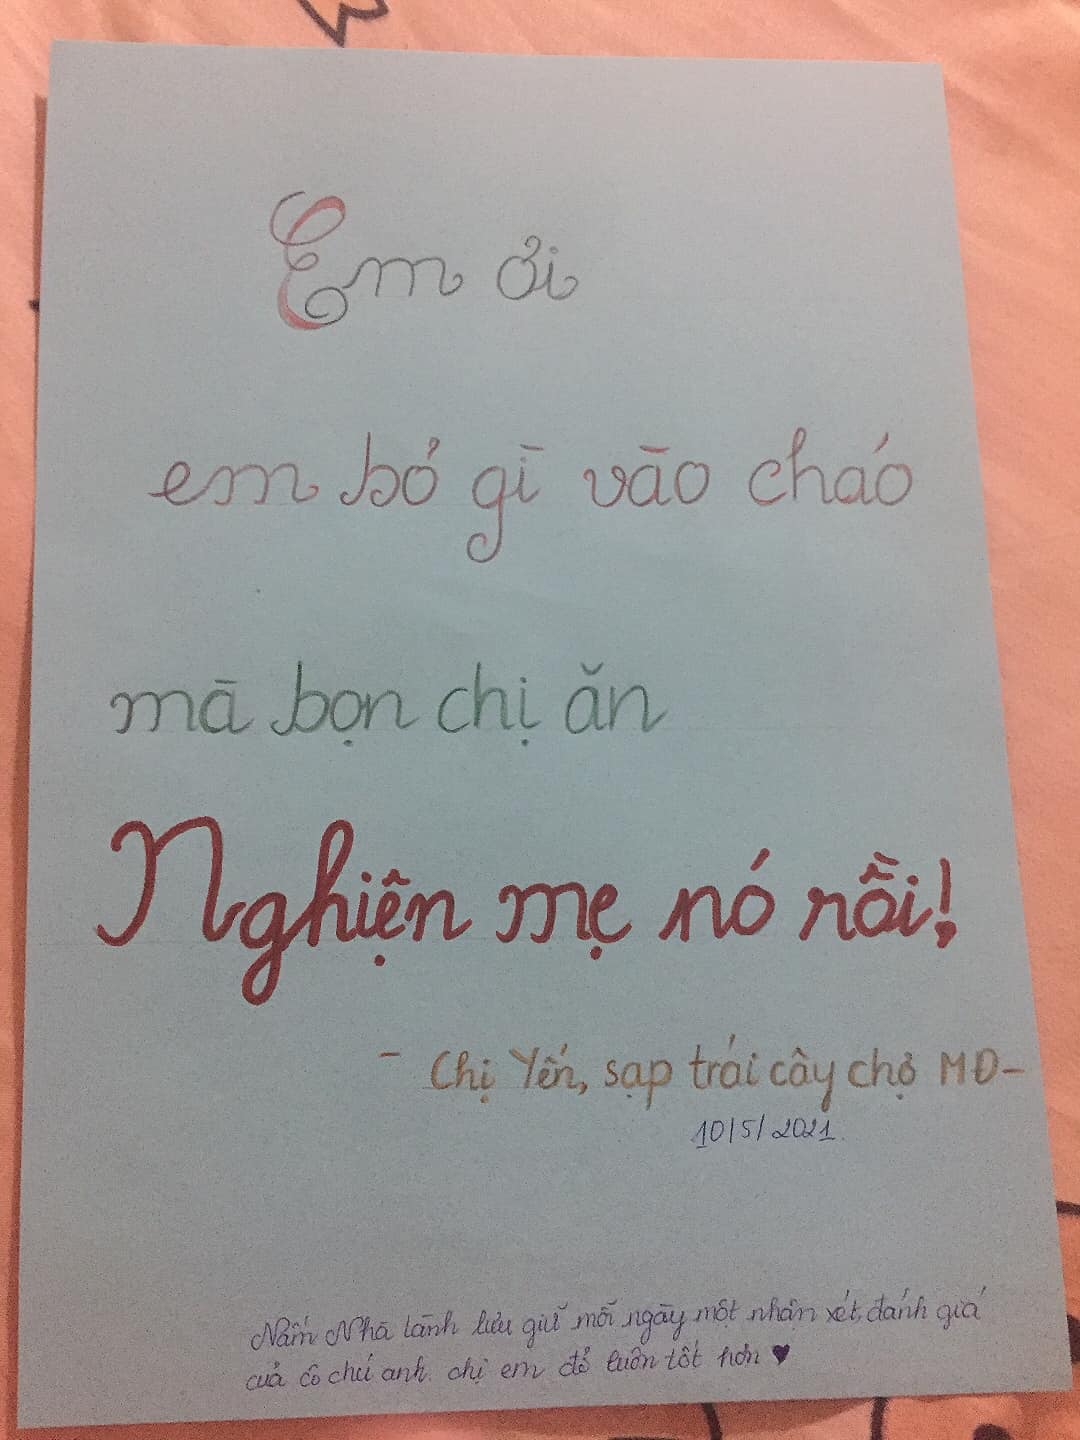 Em ơi
em bỏ gì vào cháo
mà bọn chị ăn
Nghiện mẹ nó rồi!
- Chị Yến, sạp trái cây chợ MĐ-
10/5/2021.
Nấm Nhà lành lưu giữ mỗi ngày một nhận xét, đánh giá
của cô chú anh chị em để luôn tốt hơn ♥